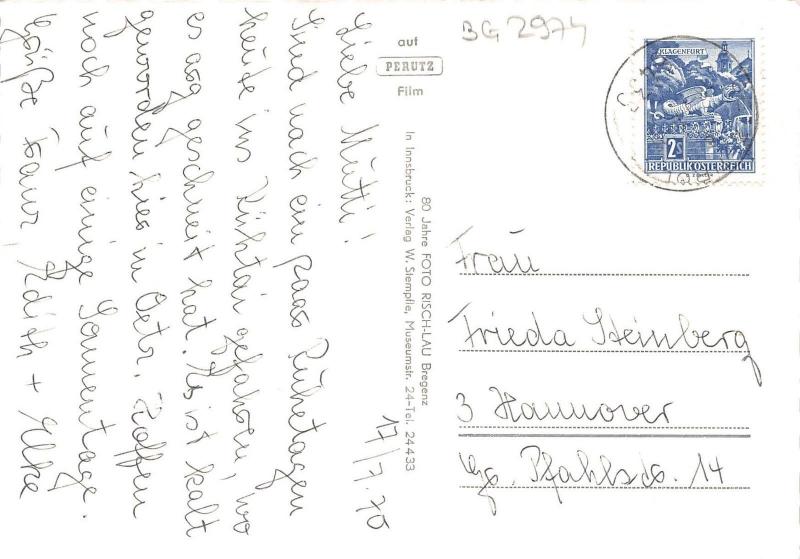 17/7.70
Liebe Mutti!
Sind nach ein paar Ruhetagen
heute ins Kühtai gefahren, wo
es arg geschneit hat. Es ist kalt
geworden hier in Oestr. Hoffen
noch auf einige Sonnentage.
Grüße Franz, Edith + Elke
auf
PERUTZ
Film
80 Jahre FOTO RISCH-LAU Bregenz
In Innsbruck: Verlag W. Stempfle, Museumstr. 24-Tel. 24433
BG 2974
KLAGENFURT
2s
REPUBLIK ÖSTERREICH
Frau
Frieda Steinberg
3 Hannover
Gr. Pfahlstr. 14